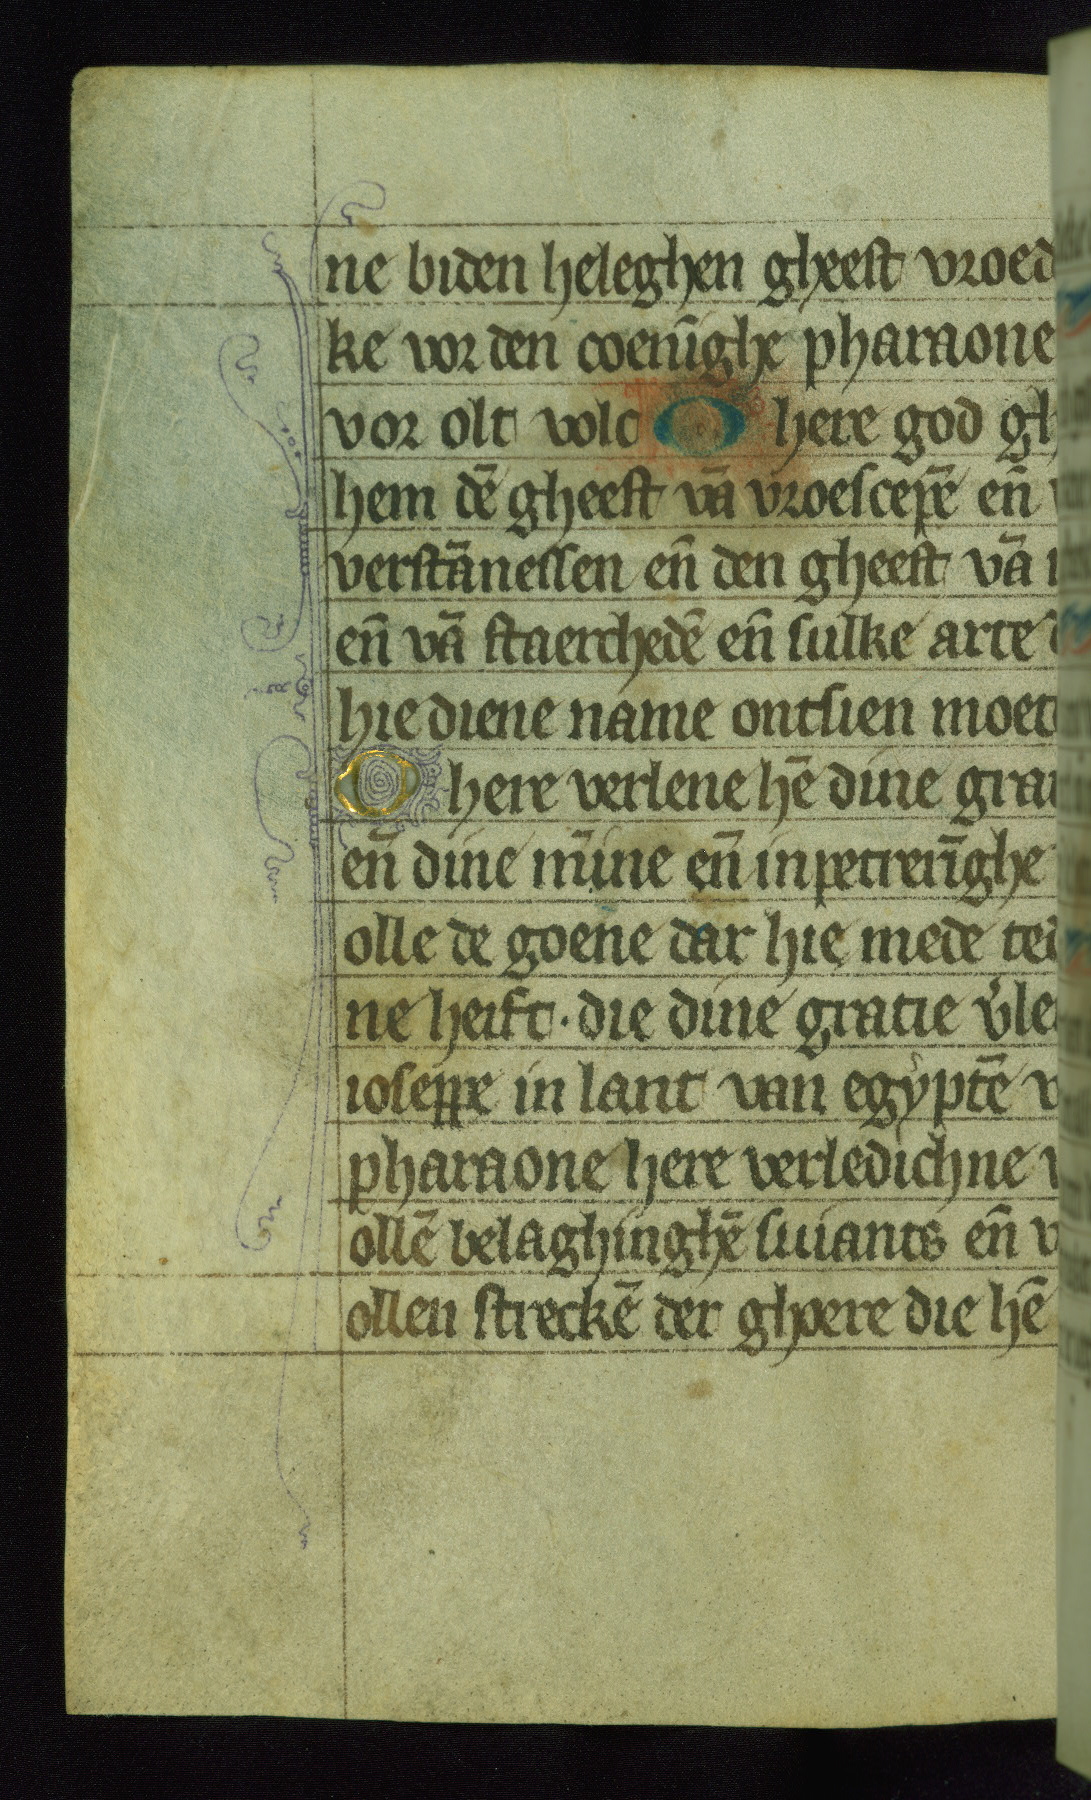 ne biden heleghen gheest vroed
ke vor den coenīghe pharaone
vor olt volc O here god gh
hem dē gheest vā vroescepē en̄
verstānessen en̄ den gheest vā
en̄ vā staerchedē en̄ sulke arte
hie diene name ontsien moet
O here verlene hē dine gra
en̄ dine mīne en̄ inpetrerīghe
olle de goene dar hie mede te
ne heift · die dine gratie v̓le
ioseppe in lant van egyptē v
pharaone here verledichne
ollē belaghinghē suiants en̄ v
ollen streckē der ghoere die hē